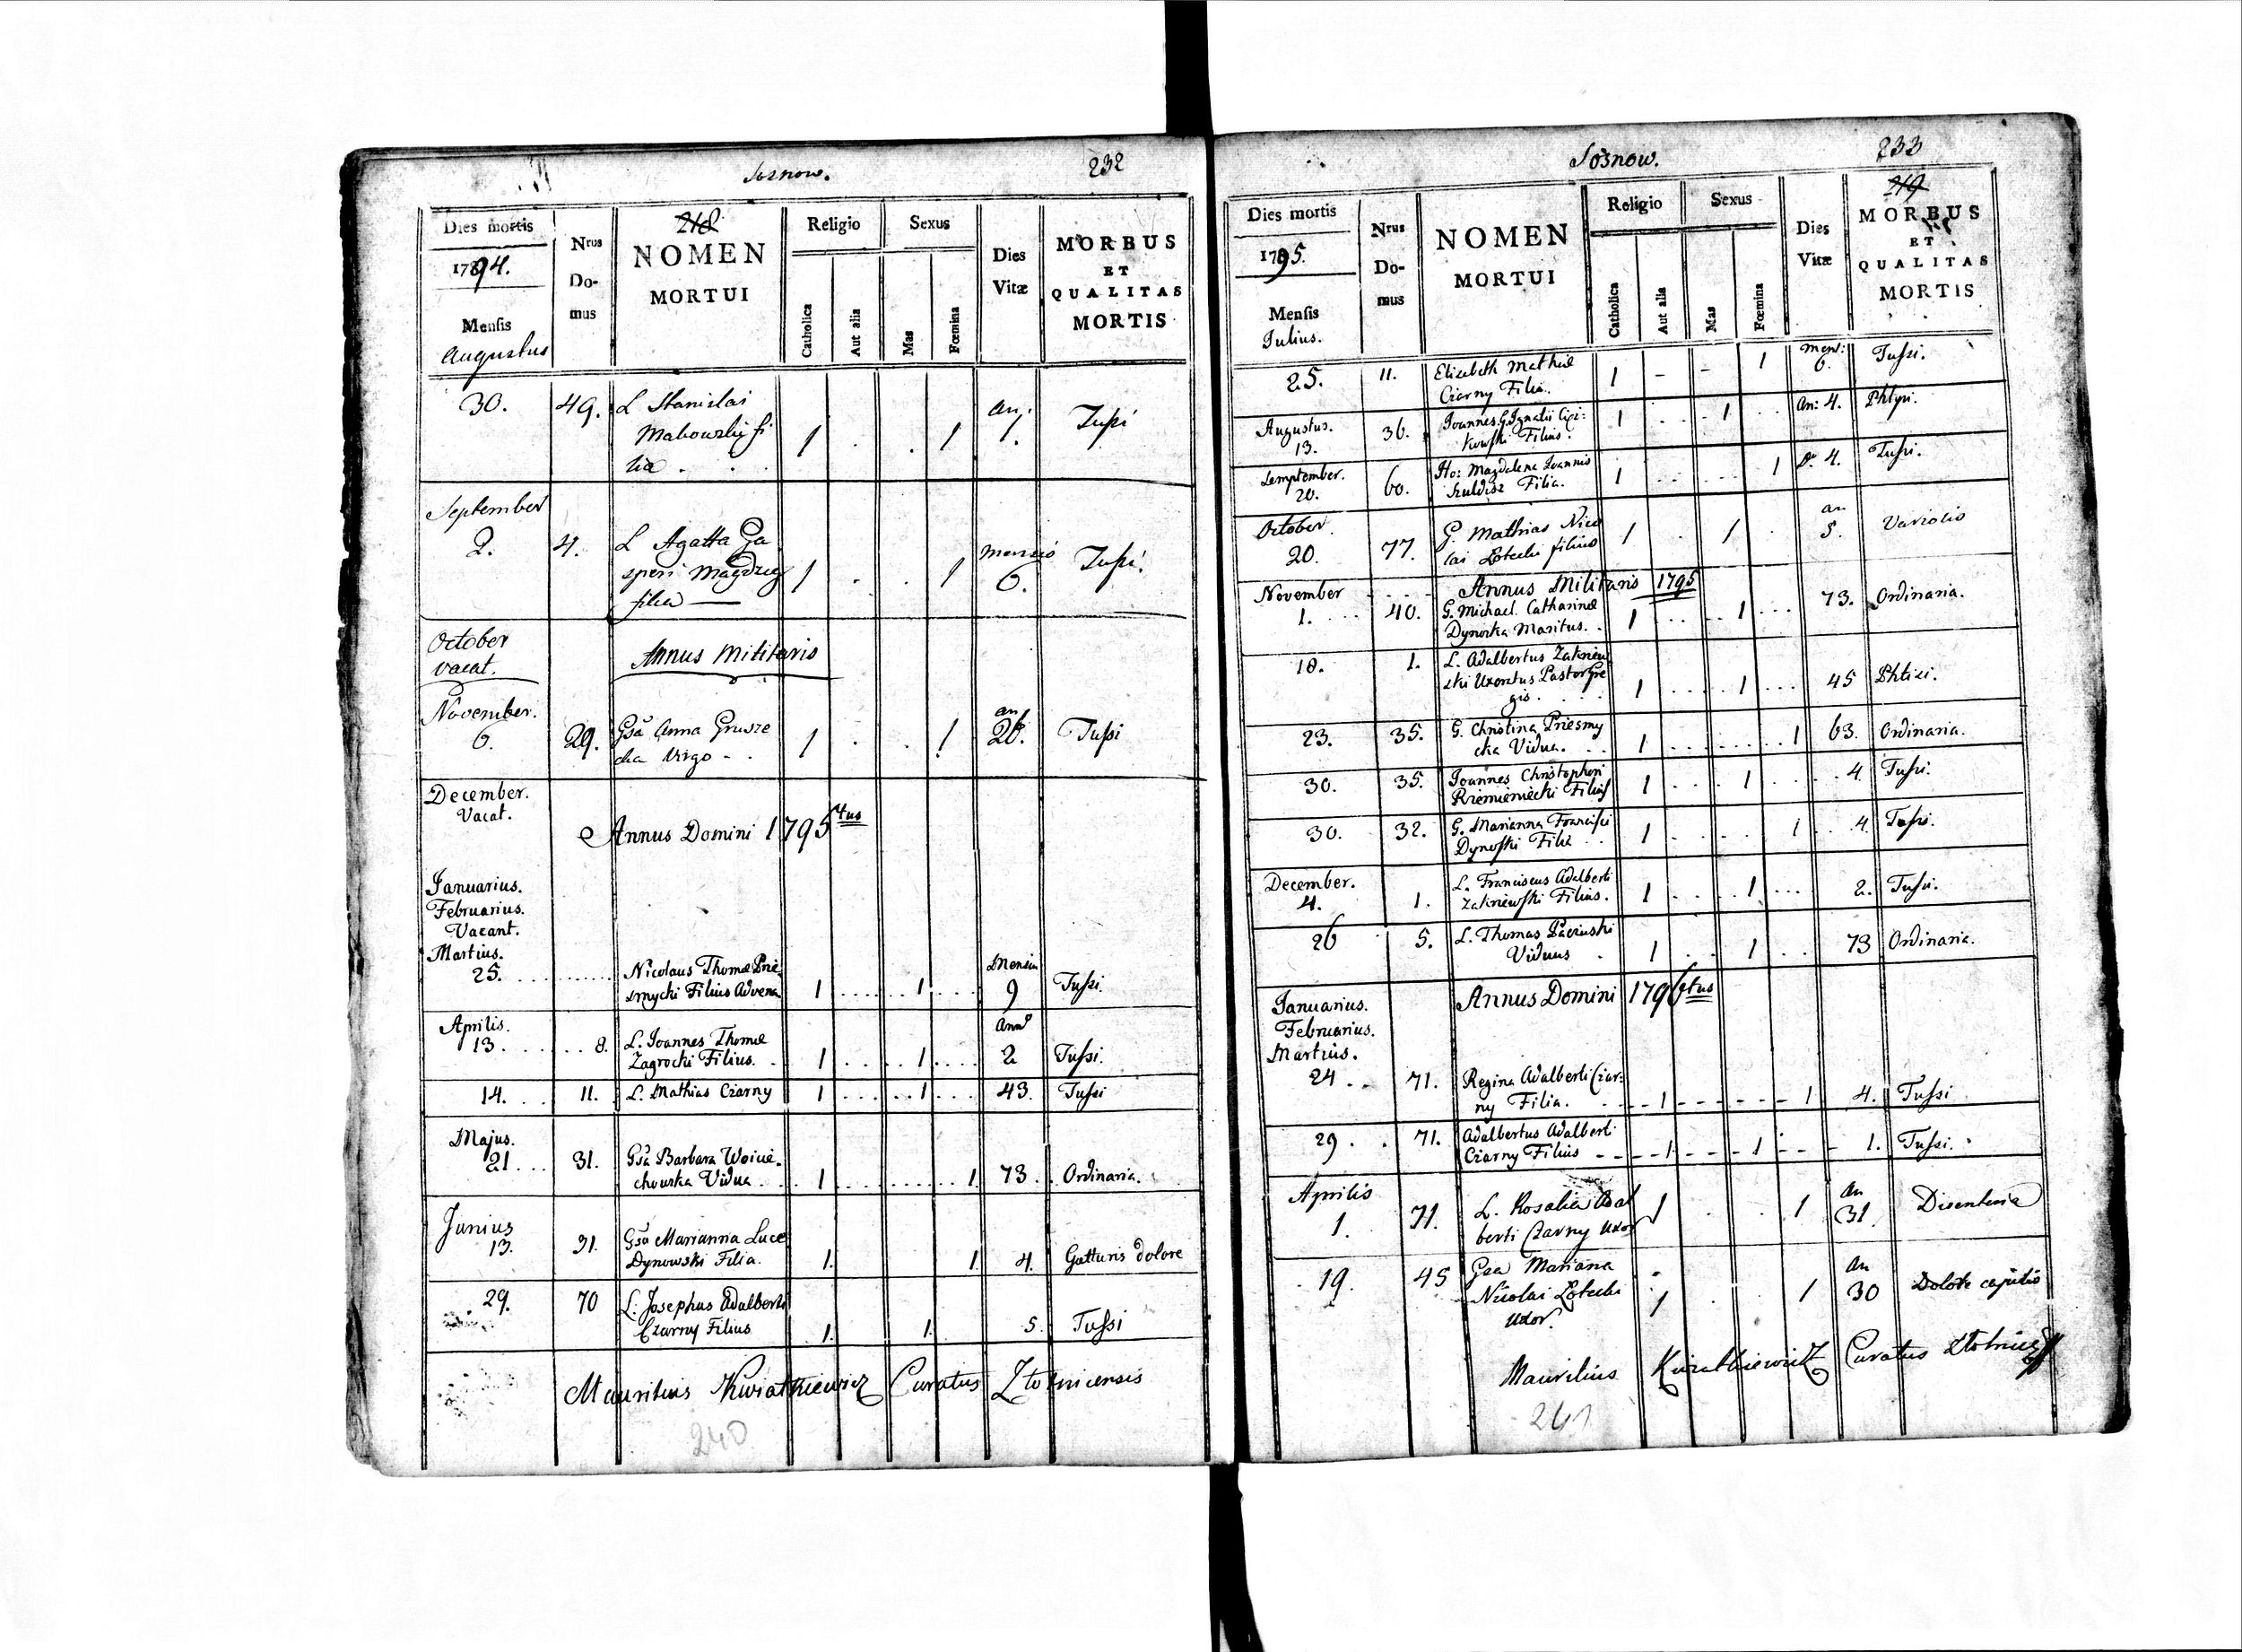 Sosnow.
232
Dies mortis
1794.
Mensis
Augustus
Nrus
Do-
mus
218
NOMEN
MORTUI
Religio
Catholica
Aut alia
Sexus
Mas
Fœmina
Dies
Vitæ
MORBUS
ET
QUALITAS
MORTIS
30. 49. L Stanislai an:
Makowski fi 1 . . 1 1. Tussi
lia . .
September
2. 4. L Agatta Ga mensis
speri Magdzig 1 . . 1 6. Tussi.
filia —
October
vacat.
Annus Militaris
November. an
6. 29. Gsa Anna Grusze 1 . . 1 26. Tussi
cka Virgo - .
December.
Vacat.
Annus Domini 1795tus
Januarius.
Februarius.
Vacant.
Martius.
25. Nicolaus Thomæ Prie Mensiu
smycki Filius Advena 1 1 9 Tussi.
Aprilis. Anno
13. 8. L. Joannes Thomæ
Zagrocki Filius. 1 1 2 Tussi.
14. 11. L. Mathias Czarny 1 1 43. Tussi
Majus.
21. 31. Gsa Barbara Woicie-
chowska Vidua 1 1. 73. Ordinaria.
Junius
13. 31. Gsa Marianna Lucæ
Dynowski Filia. 1. 1. 4. Gutturis dolore
29. 70 L. Josephus Adalberti
Czarny Filius 1. 1. 5. Tussi
Mauritius Kwiatkiewicz Curatus Zlotnicensis
240
Sosnow.
233
Dies mortis
1795.
Mensis
Julius.
Nrus
Do-
mus
NOMEN
MORTUI
Religio
Catholica
Aut alia
Sexus
Mas
Fœmina
Dies
Vitæ
219
MORBUS
ET
QUALITAS
MORTIS
25. 11. Elisabeth Mathiæ 1 - - 1 Mens: 6. Tussi.
Czarny Filia.
Augustus. 36. Joannes G. Ignatii 1 . . 1 . . An: 4. Phtysi.
13. Filius.
Semptember. 60. Ho: Magdalena Joannis 1 1 4. Tussi.
20. Szuldisz Filia.
October an
20. 77. G. Mathias Nico 1 . 1 . 5. Variolis
lai filius
November Annus Militaris 1795
1. 40. G. Michael Catharinæ 1 1 73. Ordinaria.
Dynoska Maritus.
18. 1. L. Adalbertus Zakniew
ski Uxoratus Pastor Gre 1 1 45 Phtisi.
gis.
23. 35. G. Christina Priesmy
cka Vidua. 1 1 63. Ordinaria.
30. 35. Joannes Christophori 1 1 4 Tussi.
Rzemieniecki Filius
30. 32. G. Marianna Francisci 1 1 4 Tussi.
Dynoski Filia
December.
4. 1. L. Franciscus Adalberti 1 1 2. Tussi.
Zakniewski Filius.
26 5. L. Thomas 1 1 73 Ordinaria.
Viduus
Annus Domini 1796tus
Januarius.
Februarius.
Martius.
24 71. Regina Adalberti Czar-
ny Filia. 1 1 4. Tussi
29. 71. Adalbertus Adalberti
Czarny Filius 1 1 1. Tussi.
Aprilis An
1. 71. L. Rosalia Adal 1 . . 1 31. Disenteria
berti Czarny Uxor
19. 45 Gsa Mariana An
Nicolai 1 1 30 Dolore capitis
Uxor.
Maurilius Kwiatkiewicz Curatus
241